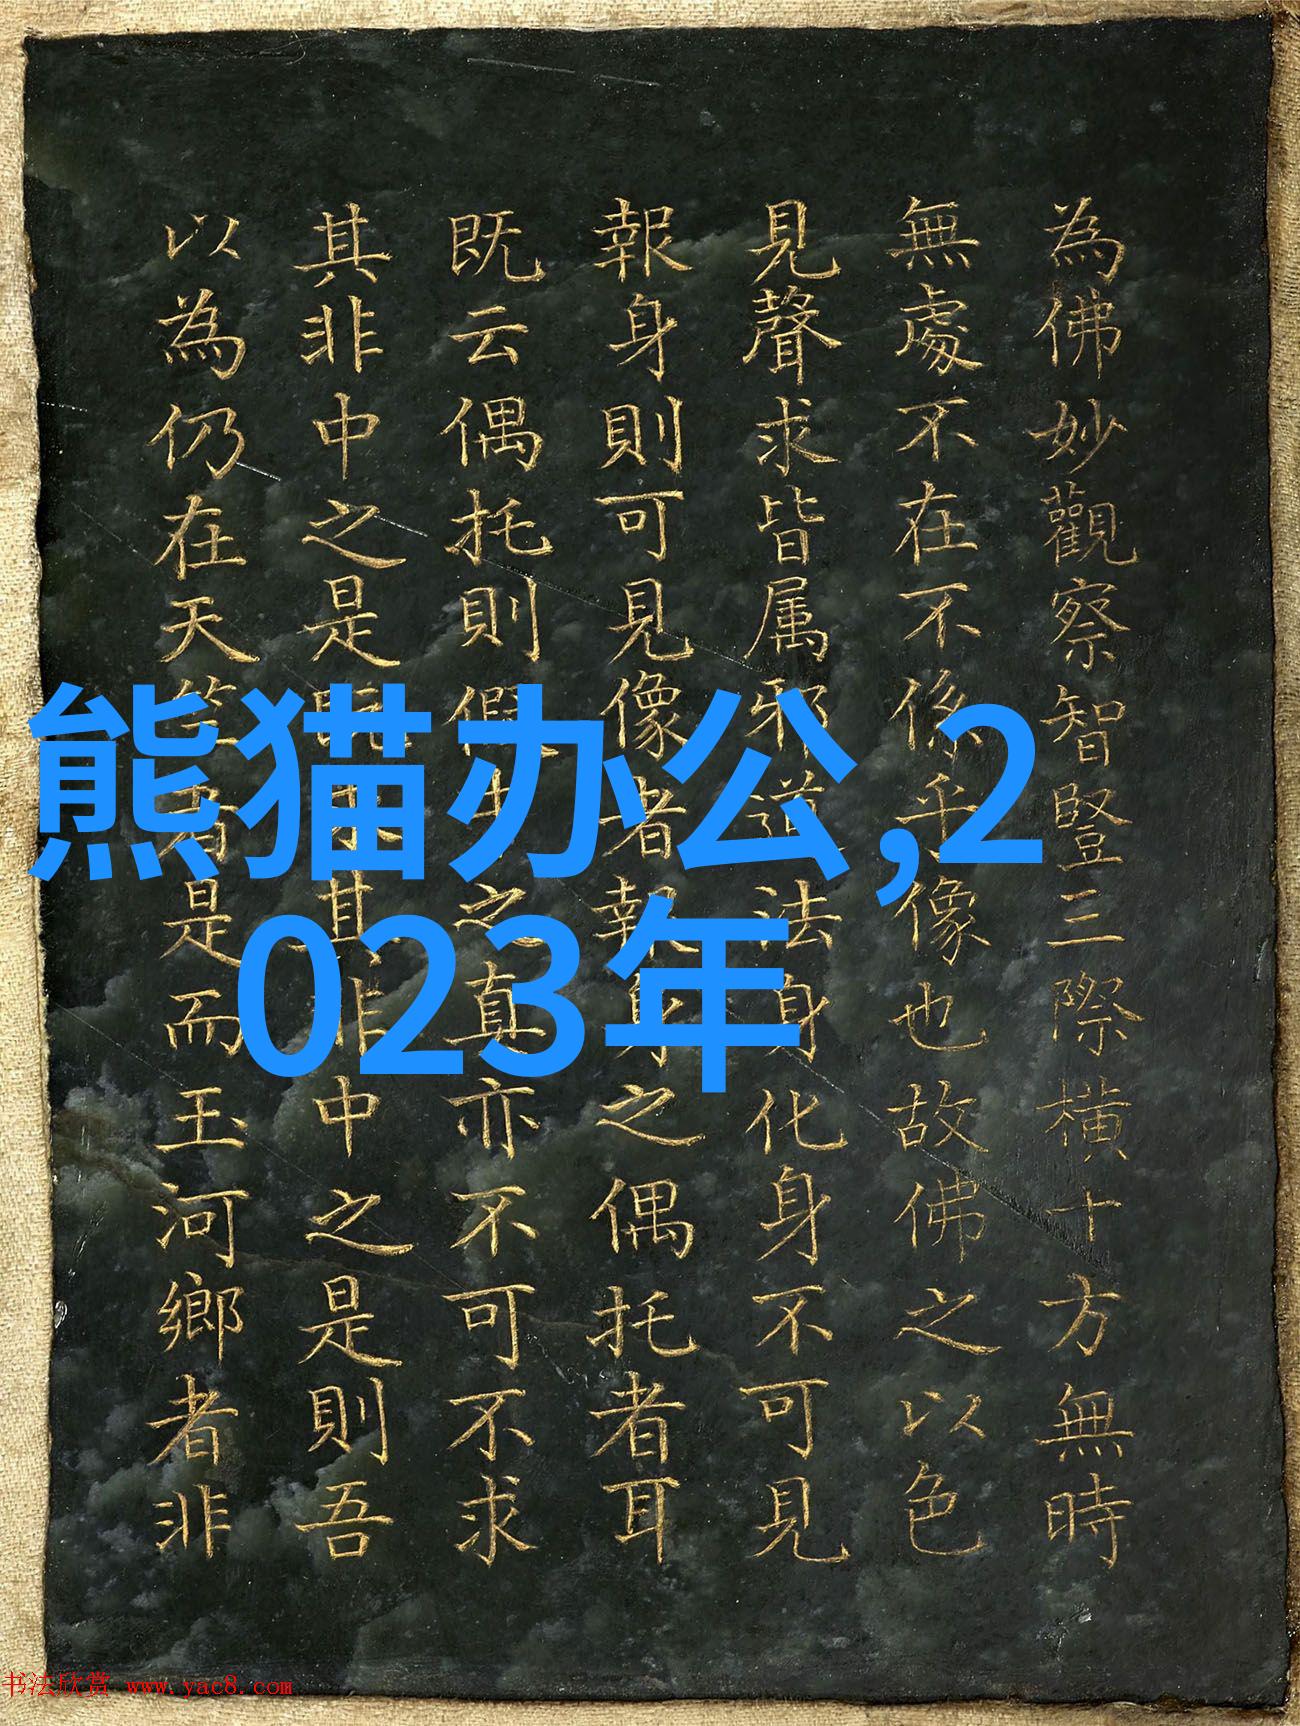 為佛妙觀察智豎三際橫十方無時
無處不在不係乎像也故佛之以色
見聲求皆属邪道法身化身不可見
報身則可見像者報身之偶托者耳
既云偶托則假中之真亦不可不求
其非中之是既求其非中之是則吾
以為仍在天竺者是而玉河鄉者非
熊猫办公,2
023年
书法欣赏 www.yac8.com